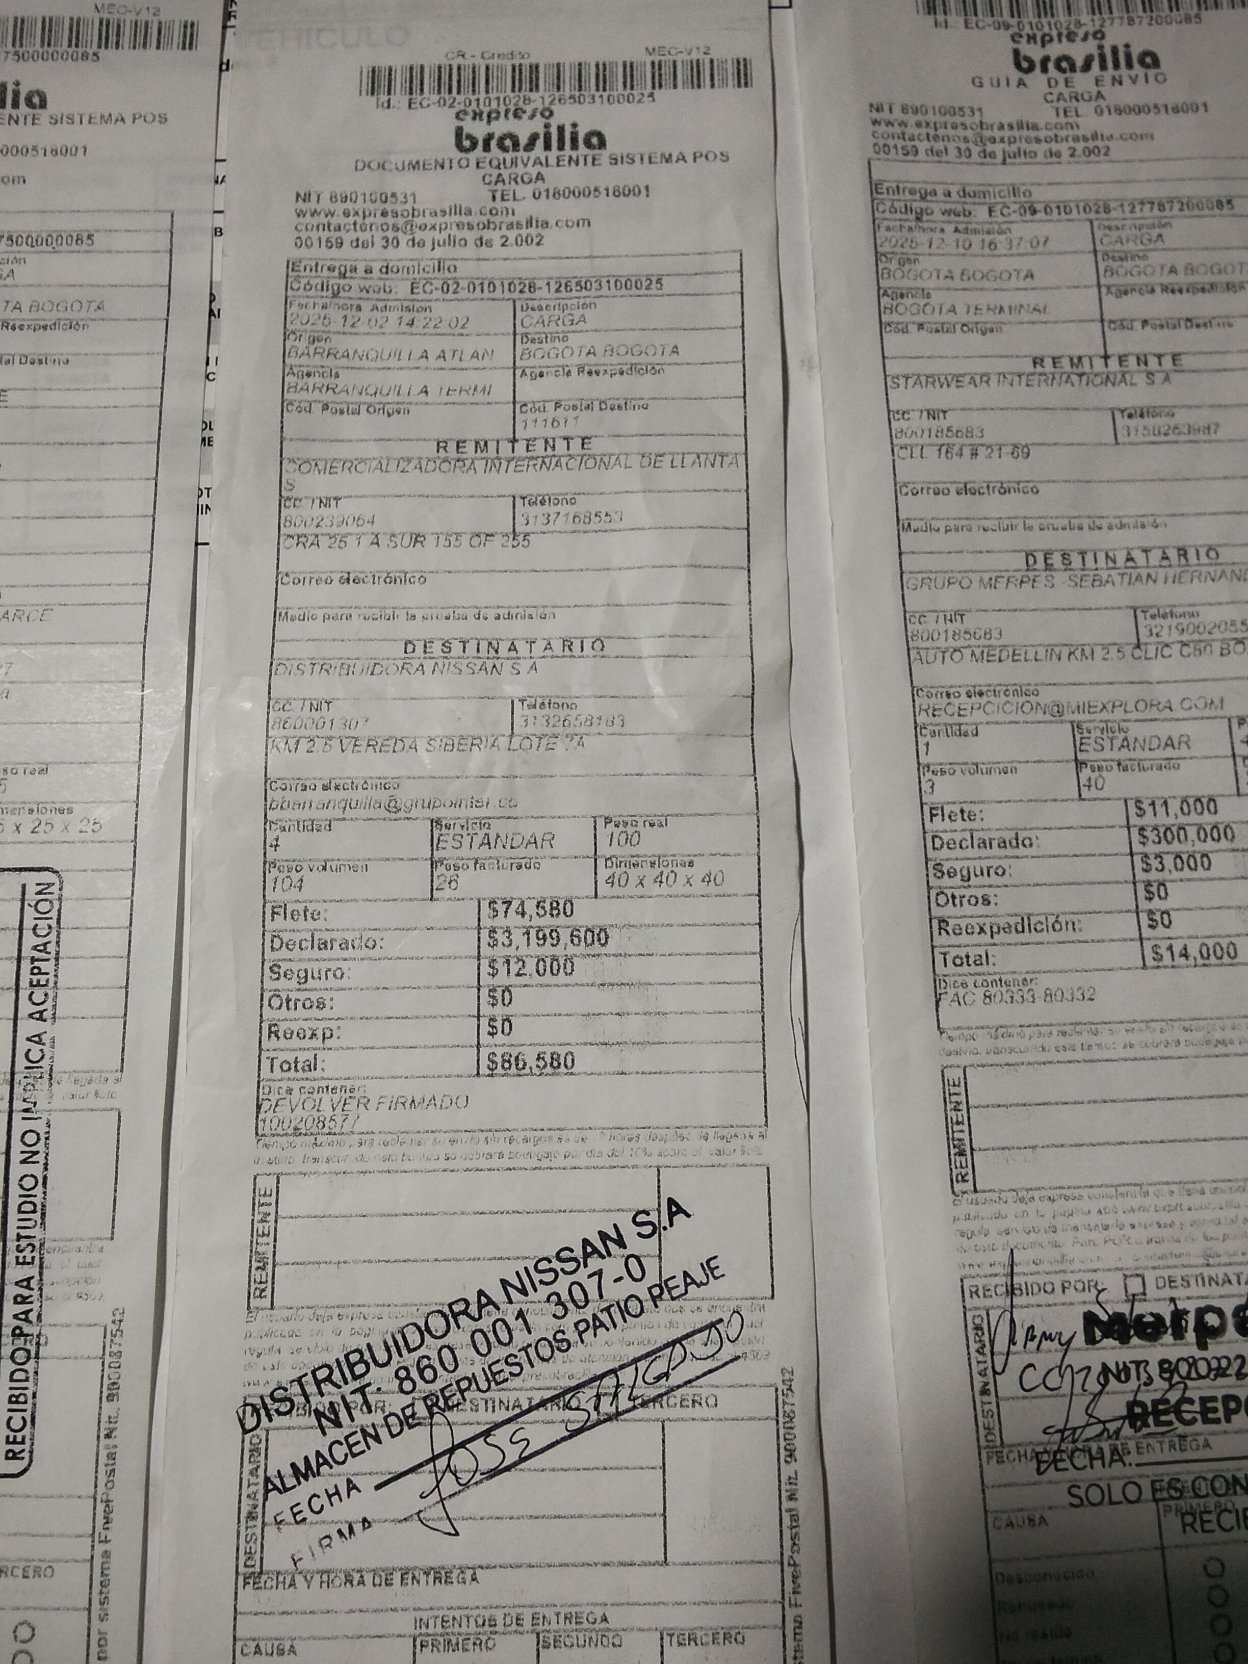 MEC-V12
7500000085
lia
ENTE SISTEMA POS
000518001
om
7500000085
TA BOGOTA
Reexpedición
al Destino
ARCE
so real
mensiones
x 25 x 25
RECIBIDO PARA ESTUDIO NO IMPLICA ACEPTACIÓN
por sistema FivePostal Nit. 900087542
RCERO
CR - Credito
MEC-V12
Id.: EC-02-0101028-126503100025
expreso
brasilia
DOCUMENTO EQUIVALENTE SISTEMA POS
CARGA
NIT 890100531 TEL. 018000518001
www.expresobrasilia.com
contactenos@expresobrasilia.com
00159 del 30 de julio de 2.002
Entrega a domicilio
Código web: EC-02-0101028-126503100025
Fecha/hora Admision Descripción
2025-12-02 14:22:02 CARGA
Origen Destino
BARRANQUILLA ATLAN BOGOTA BOGOTA
Agencia Agencia Reexpedición
BARRANQUILLA TERMI
Cód. Postal Origen Cód. Postal Destino
111611
REMITENTE
COMERCIALIZADORA INTERNACIONAL DE LLANTA
S
CC. / NIT Teléfono
800239064 3137168553
CRA 25 1 A SUR 155 OF 255
Correo electrónico
Medio para recibir la prueba de admisión
DESTINATARIO
DISTRIBUIDORA NISSAN S A
CC. / NIT Teléfono
860001307 3132658183
KM 2.5 VEREDA SIBERIA LOTE 7A
Correo electrónico
Cantidad Servicio Peso real
4 ESTANDAR 100
Peso volumen Peso facturado Dimensiones
104 26 40 x 40 x 40
Flete: $74,580
Declarado: $3,199,600
Seguro: $12,000
Otros: $0
Reexp: $0
Total: $86,580
Dice contener:
DEVOLVER FIRMADO
100208577
REMITENTE
DISTRIBUIDORA NISSAN S.A
NIT. 860 001 307-0
ALMACEN DE REPUESTOS PATIO PEAJE
FECHA
FIRMA
JOSE SALGADO
DESTINATARIO
TERCERO
DESTINATARIO
FECHA Y HORA DE ENTREGA
INTENTOS DE ENTREGA
CAUSA PRIMERO SEGUNDO TERCERO
FivePostal Nit. 900087542
Id.: EC-09-0101028-127787200085
expreso
brasilia
GUIA DE ENVIO
CARGA
NIT 890100531 TEL. 018000518001
www.expresobrasilia.com
contactenos@expresobrasilia.com
00159 del 30 de julio de 2.002
Entrega a domicilio
Código web: EC-09-0101028-127787200085
Fecha/hora Admisión Descripción
2025-12-10 16:37:07 CARGA
Origen Destino
BOGOTA BOGOTA BOGOTA BOGOT
Agencia Agencia Reexpedición
BOGOTA TERMINAL
Cód. Postal Origen Cód. Postal Destino
REMITENTE
STARWEAR INTERNATIONAL S A
CC. / NIT Teléfono
800185683 3158263987
CLL 164 # 21-69
Correo electrónico
Medio para recibir la prueba de admisión
DESTINATARIO
GRUPO MERPES -SEBATIAN HERNAN
CC. / NIT Teléfono
800185683 3219002055
AUTO MEDELLIN KM 2.5 CLIC C80 BO
Correo electrónico
RECEPCICION@MIEXPLORA.COM
Cantidad Servicio
1 ESTANDAR
Peso volumen Peso facturado
3 40
Flete: $11,000
Declarado: $300,000
Seguro: $3,000
Otros: $0
Reexpedición: $0
Total: $14,000
Dice contener:
FAC 80333-80332
REMITENTE
RECIBIDO POR: DESTINATA
DESTINATARIO
Merpe
RECEPC
FECHA Y HORA DE ENTREGA
FECHA:
SOLO ES CON
PRIMERO
CAUSA RECI
Desconocido
Rehusado
No reside